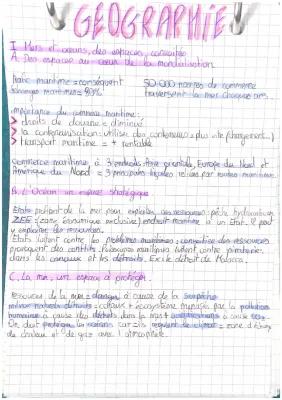 GÉOGRAPHIE
I. Mers et océans, des espaces convoités
A. Des espaces au cœur de la mondialisation
Trafic maritime = conséquent 50 000 navires de commerce
Échanges maritimes = 90% traversent la mer chaque ans.
Importance du commerce maritime:
> droits de douane = diminué
> la conteneurisation: utiliser des conteneurs = plus vite (chargement...)
> transport maritime = + rentable
Commerce maritime à 3 endroits: Asie orientale, Europe du Nord et
Amérique du Nord = 3 principales façades reliées par routes maritimes.
B. L'Océan un espace stratégique.
États profitent de la mer pour exploiter ses ressources: pêche, hydrocarbures
ZEE (zone économique exclusive) = endroit maritime à un État. Il peut
y exploiter les ressources.
États luttent contre les problèmes maritimes; convoitise des ressources
provoquent des conflits. Puissances maritimes luttent contre piraterie
dans les canaux et les détroits. Ex: le détroit de Malacca.
C. La mer, un espace à protéger.
ressources de la mer = danger à cause de la surpêche
écosystème menacé par la pollution
humaine à cause des déchets dans la mer + à cause
On doit protéger les océans car = ils régulent le climat = zone d'échange
de chaleur et de gaz avec l'atmosphère.